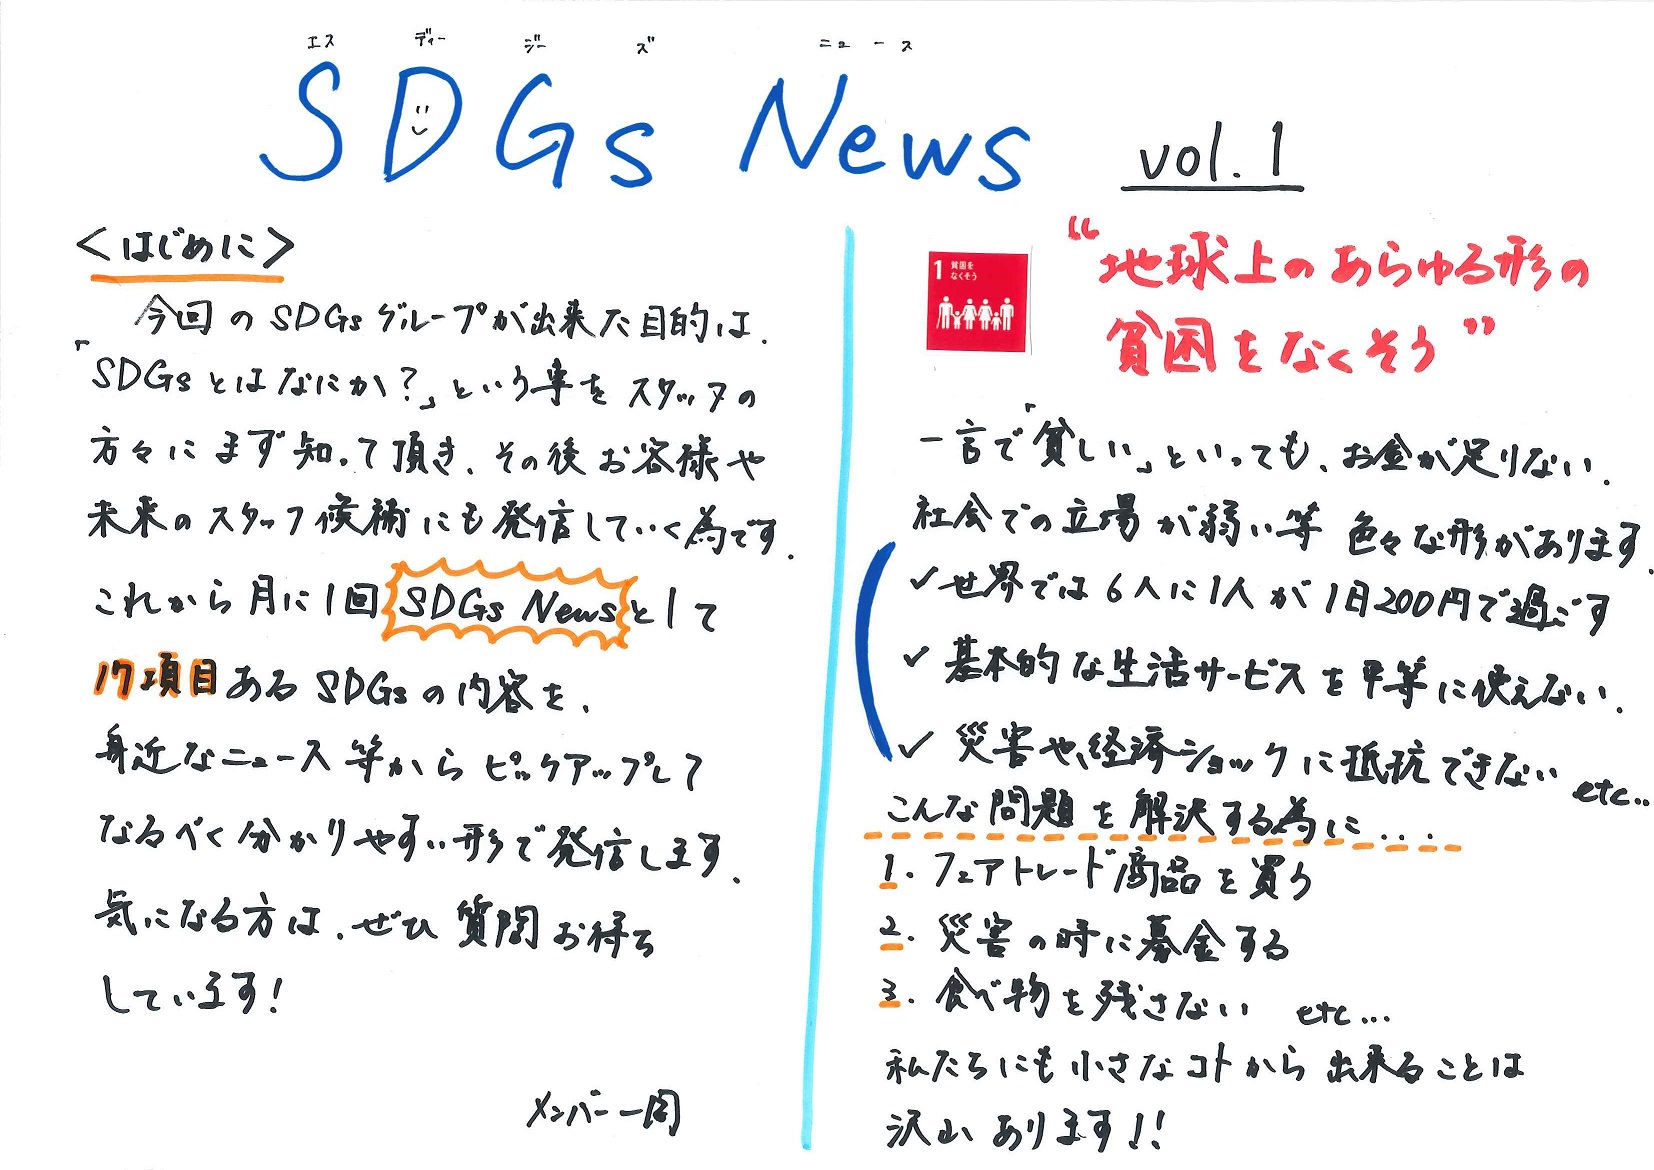 エス ディー ジー ズ ニュース
SDGs News vol.1
<はじめに>
今回のSDGsグループが出来た目的は、
「SDGsとはなにか?」という事をスタッフの
方々にまず知って頂き、その後お客様や
未来のスタッフ候補にも発信していく為です。
これから月に1回SDGs Newsとして
17項目あるSDGsの内容を、
身近なニュース等からピックアップして
なるべく分かりやすい形で発信します。
気になる方は、ぜひ質問お待ち
しています!
メンバー一同
1 貧困を
なくそう
“地球上のあらゆる形の
貧困をなくそう”
一言で「貧しい」といっても、お金が足りない、
社会での立場が弱い等 色々な形があります。
✓世界では6人に1人が1日200円で過ごす
✓基本的な生活サービスを平等に使えない、
✓災害や、経済ショックに抵抗できない etc...
こんな問題を解決する為に....
1. フェアトレード商品を買う
2. 災害の時に募金する
3. 食べ物を残さない etc...
私たちにも小さなコトから出来ることは
沢山あります!!